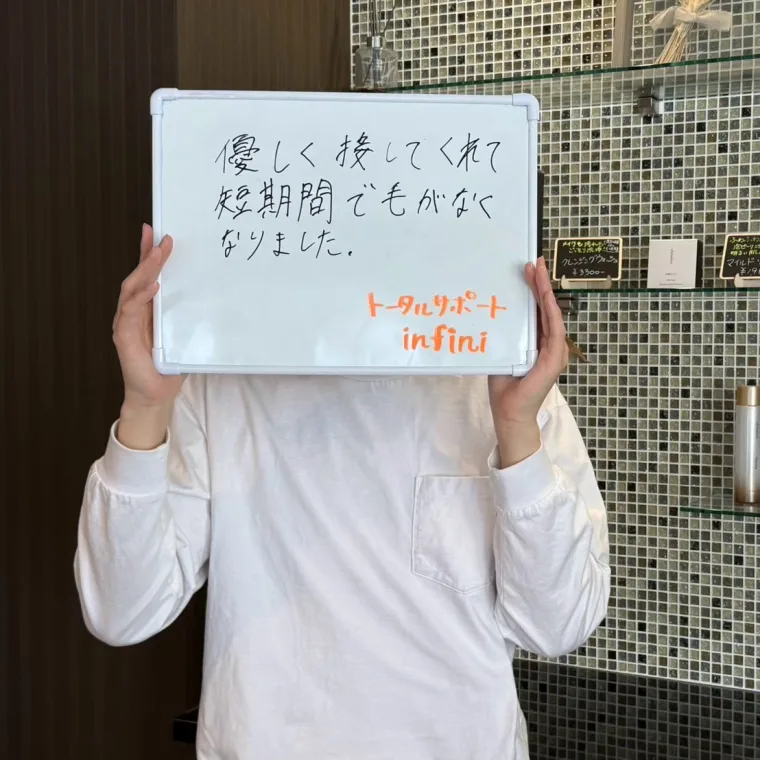 優しく接してくれて
短期間で毛がなく
なりました。
トータルサポート
infini
クレンジングウォッシュ
¥3300-
マイルド